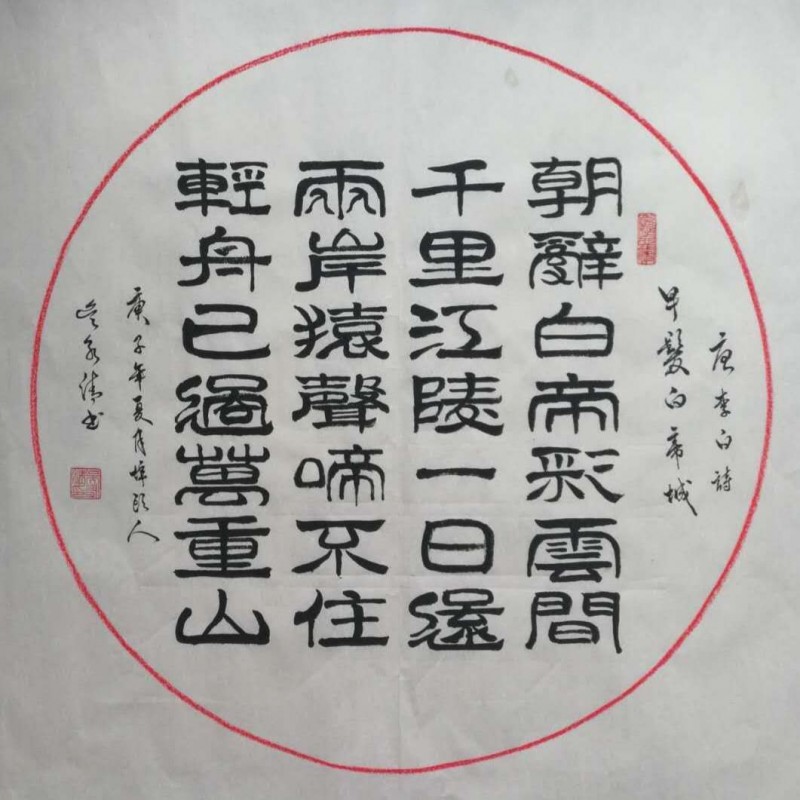 唐李白詩
早髮白帝城
朝辭白帝彩雲間
千里江陵一日還
兩岸猿聲啼不住
輕舟已過萬重山
庚子年夏月埠头人
永清书